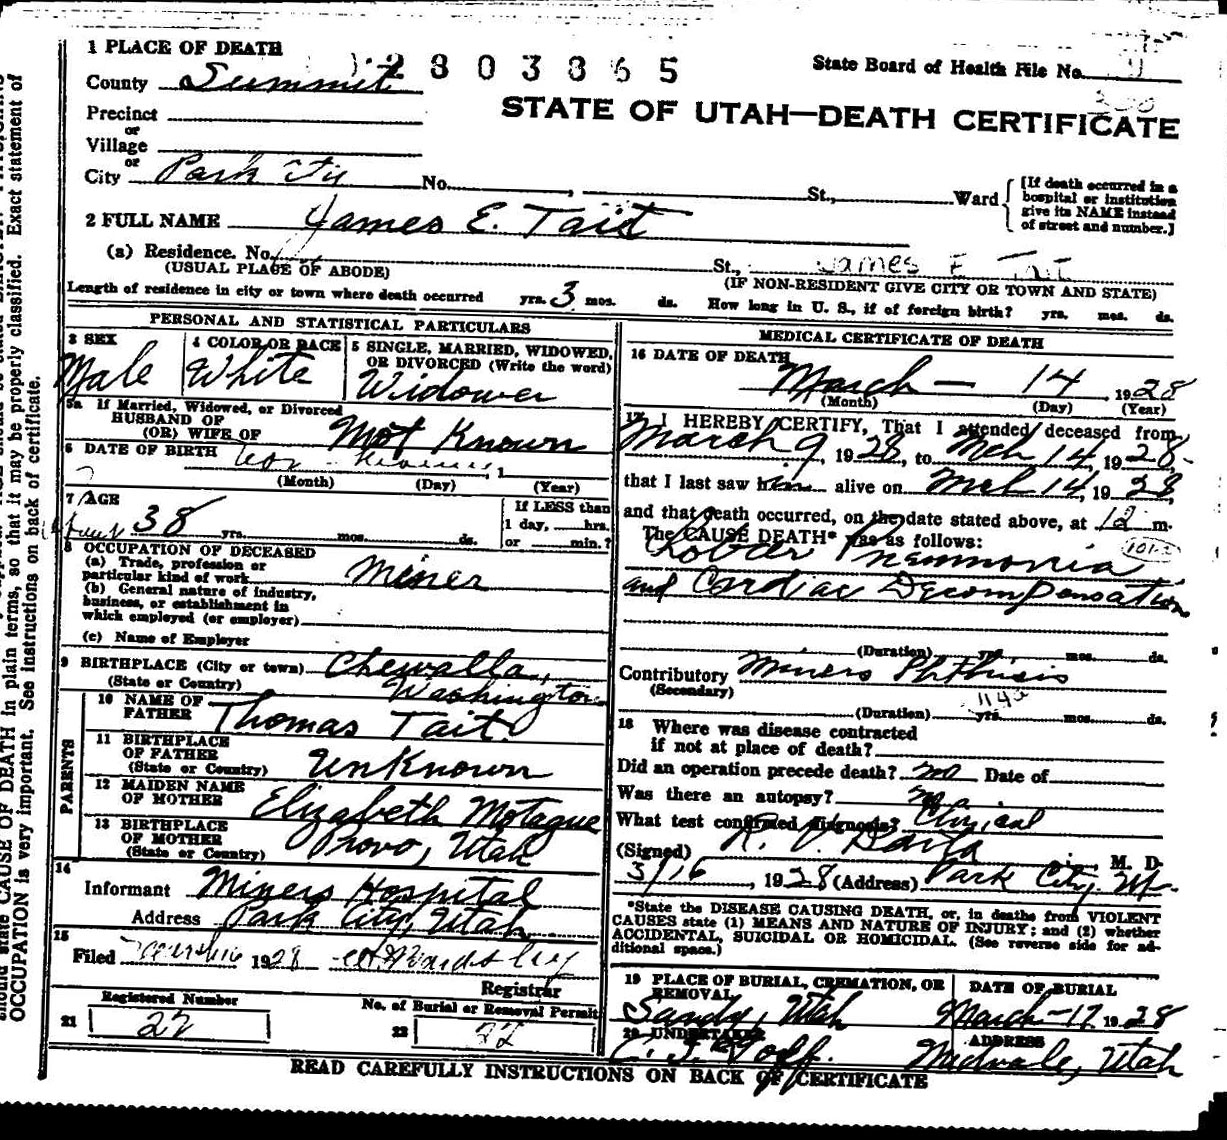 1 PLACE OF DEATH
2803865
State Board of Health File No.
County Summit
STATE OF UTAH—DEATH CERTIFICATE
Precinct
or
Village
or
City Park City No. , St., Ward
[If death occurred in a hospital or institution give its NAME instead of street and number.]
2 FULL NAME James E. Tait
(a) Residence. No. St., James E Tait
(USUAL PLACE OF ABODE) (IF NON-RESIDENT GIVE CITY OR TOWN AND STATE)
Length of residence in city or town where death occurred yrs. 3 mos. ds. How long in U. S., if of foreign birth? yrs. mos. ds.
PERSONAL AND STATISTICAL PARTICULARS
3 SEX
Male
4 COLOR OR RACE
White
5 SINGLE, MARRIED, WIDOWED, OR DIVORCED (Write the word)
Widower
5a If Married, Widowed, or Divorced
HUSBAND OF
(OR) WIFE OF Not Known
6 DATE OF BIRTH , 1
(Month) (Day) (Year)
7 AGE
38 yrs. mos. ds.
If LESS than
1 day, hrs.
or min.?
8 OCCUPATION OF DECEASED
(a) Trade, profession or
particular kind of work Miner
(b) General nature of industry,
business, or establishment in
which employed (or employer)
(c) Name of Employer
9 BIRTHPLACE (City or town) Chewalla,
(State or Country) Washington
PARENTS
10 NAME OF
FATHER Thomas Tait
11 BIRTHPLACE
OF FATHER
(State or Country) Unknown
12 MAIDEN NAME
OF MOTHER Elizabeth Motague
13 BIRTHPLACE
OF MOTHER
(State or Country) Provo, Utah
14
Informant Miners Hospital
Address Park City, Utah
15
Filed 1928
Registrar
Registered Number
21 22
No. of Burial or Removal Permit
22 22
MEDICAL CERTIFICATE OF DEATH
16 DATE OF DEATH
March — 14, 1928
(Month) (Day) (Year)
17 I HEREBY CERTIFY, That I attended deceased from
March 9, 1928, to Mch 14, 1928
that I last saw him alive on Mch 14, 1928
and that death occurred, on the date stated above, at 12 m.
The CAUSE DEATH* was as follows:
Lobar Pneumonia
and Cardiac Decompensation
(Duration) yrs. mos. ds.
Contributory Miners Phthisis
(Secondary)
(Duration) yrs. mos. ds.
18 Where was disease contracted
if not at place of death?
Did an operation precede death? no Date of
Was there an autopsy? no
What test confirmed diagnosis? Clinical
(Signed) , M. D.
3/16, 1928 (Address) Park City, Ut.
*State the DISEASE CAUSING DEATH, or, in deaths from VIOLENT
CAUSES state (1) MEANS AND NATURE OF INJURY; and (2) whether
ACCIDENTAL, SUICIDAL OR HOMICIDAL. (See reverse side for ad-
ditional space.)
19 PLACE OF BURIAL, CREMATION, OR REMOVAL
Sandy, Utah
DATE OF BURIAL
March—17 1928
20 UNDERTAKER
C. J. Goff.
ADDRESS
Midvale, Utah
READ CAREFULLY INSTRUCTIONS ON BACK OF CERTIFICATE
should state CAUSE OF DEATH in plain terms, so that it may be properly classified. Exact statement of
OCCUPATION is very important. See instructions on back of certificate.